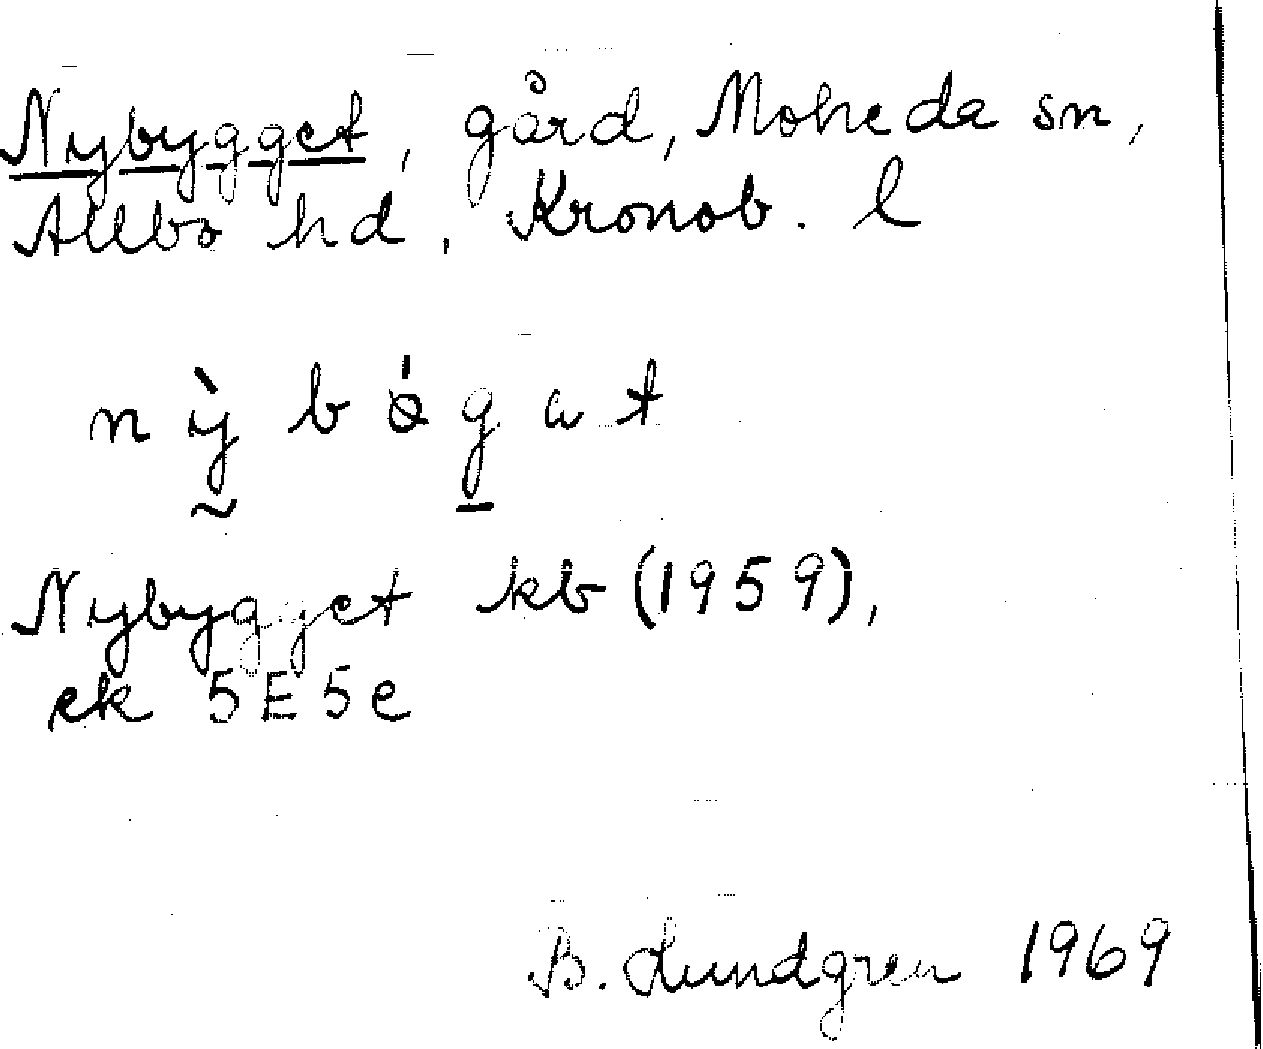 Nybygget, gård, Moheda sn,
Allbo hd, Kronob. l
Nybygget kb (1959),
ek 5E5e
B. Lundgren 1969